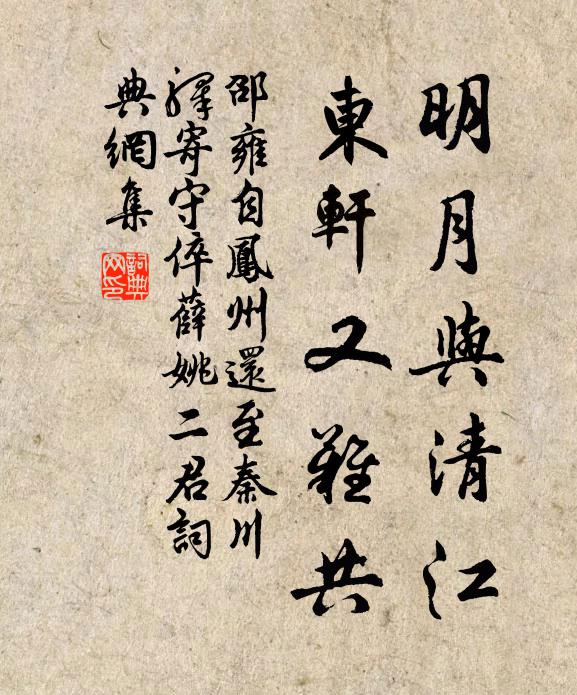 明月與清江
東軒又難共
邵雍自鳳州還至秦川
驛寄守倅薛姚二君詞
典網集
詞典网印